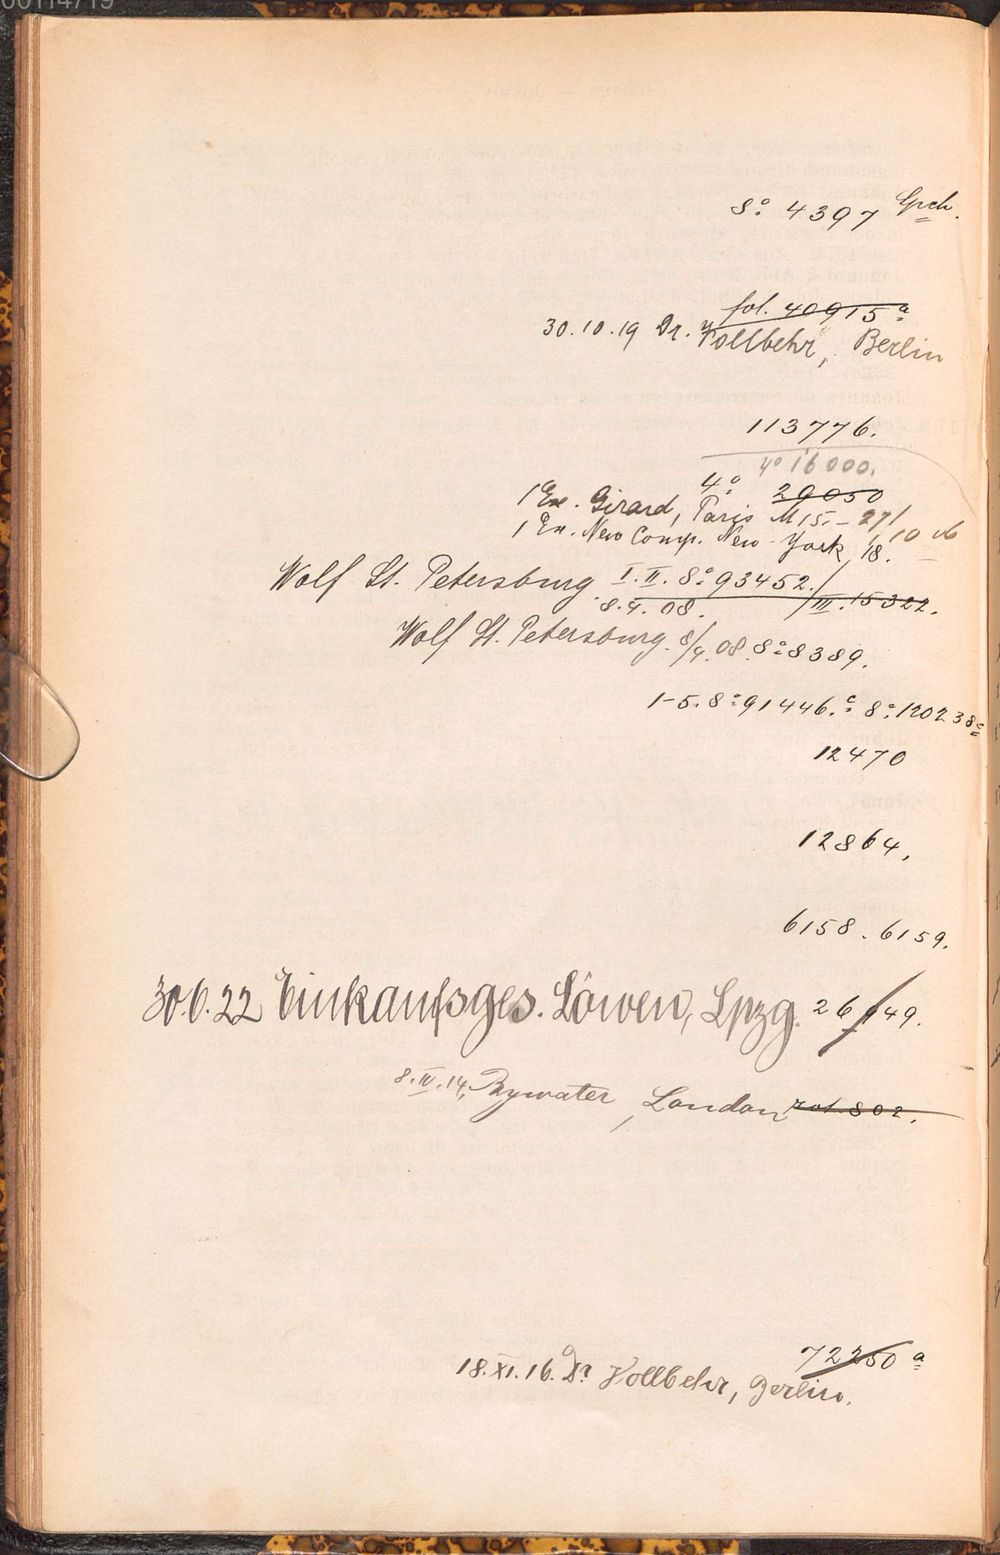 00114719
8° 4397 Gsch.
fol. 40915 a
30.10.19 Dr. Vollbehr, Berlin
113776.
4° 16000.
4° 29050
1 Ex. Girard, Paris M 15.– 27/10 06
1 Ex. New Comp. New-York, 18.–
Wolf St. Petersburg I. II. 8° 93452./III. 15322.
8.4.08.
Wolf St. Petersburg. 8/4.08. 8° 8389.
1–5. 8° 91446. c 8° 120238 c
12470
12864,
6158. 6159.
30.6.22 Einkaufsges. Löwen, Lpzg. 26149.
8.IV.14, Bywater, London 802.
72250 a
18.XI.16. Dr Vollbehr, Berlin.